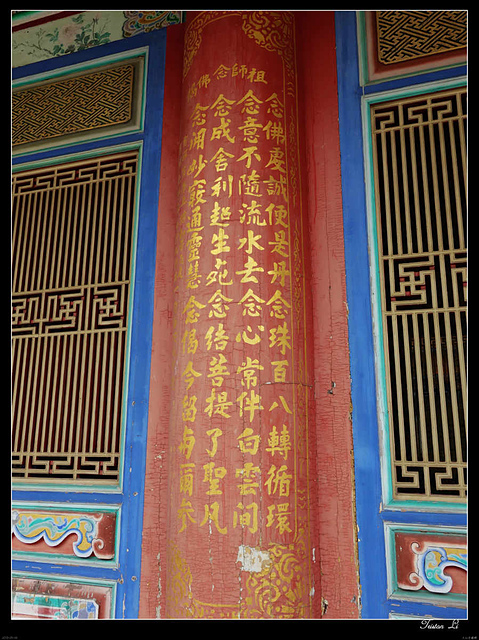 祖師念佛偈
念佛虔誠便是丹念珠百八轉循環
念意不隨流水去念心常伴白雲間
念成舍利超生死念結菩提了聖凡
念開妙竅通靈慧念偈今留與爾參
Tristan Li